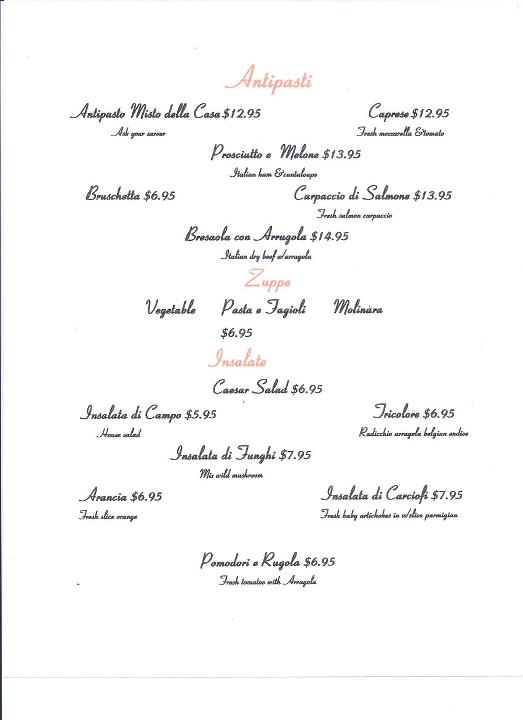 Antipasti
Antipasto Misto della Casa $12.95
Caprese $12.95
Ask your server
Fresh mozzarella & tomato
Prosciutto e Melone $13.95
Italian ham & cantaloupe
Bruschetta $6.95
Carpaccio di Salmone $13.95
Fresh salmon carpaccio
Bresaola con Arrugola $14.95
Italian dry beef w/arrugola
Zuppe
Vegetable Pasta e Fagioli Molinara
$6.95
Insalate
Caesar Salad $6.95
Insalata di Campo $5.95
Tricolore $6.95
House salad
Radicchio arrugola belgian endive
Insalata di Funghi $7.95
Mix wild mushroom
Arancia $6.95
Insalata di Carciofi $7.95
Fresh slice orange
Fresh baby artichokes in w/slice parmigian
Pomodori e Rugola $6.95
Fresh tomatoe with Arrugola